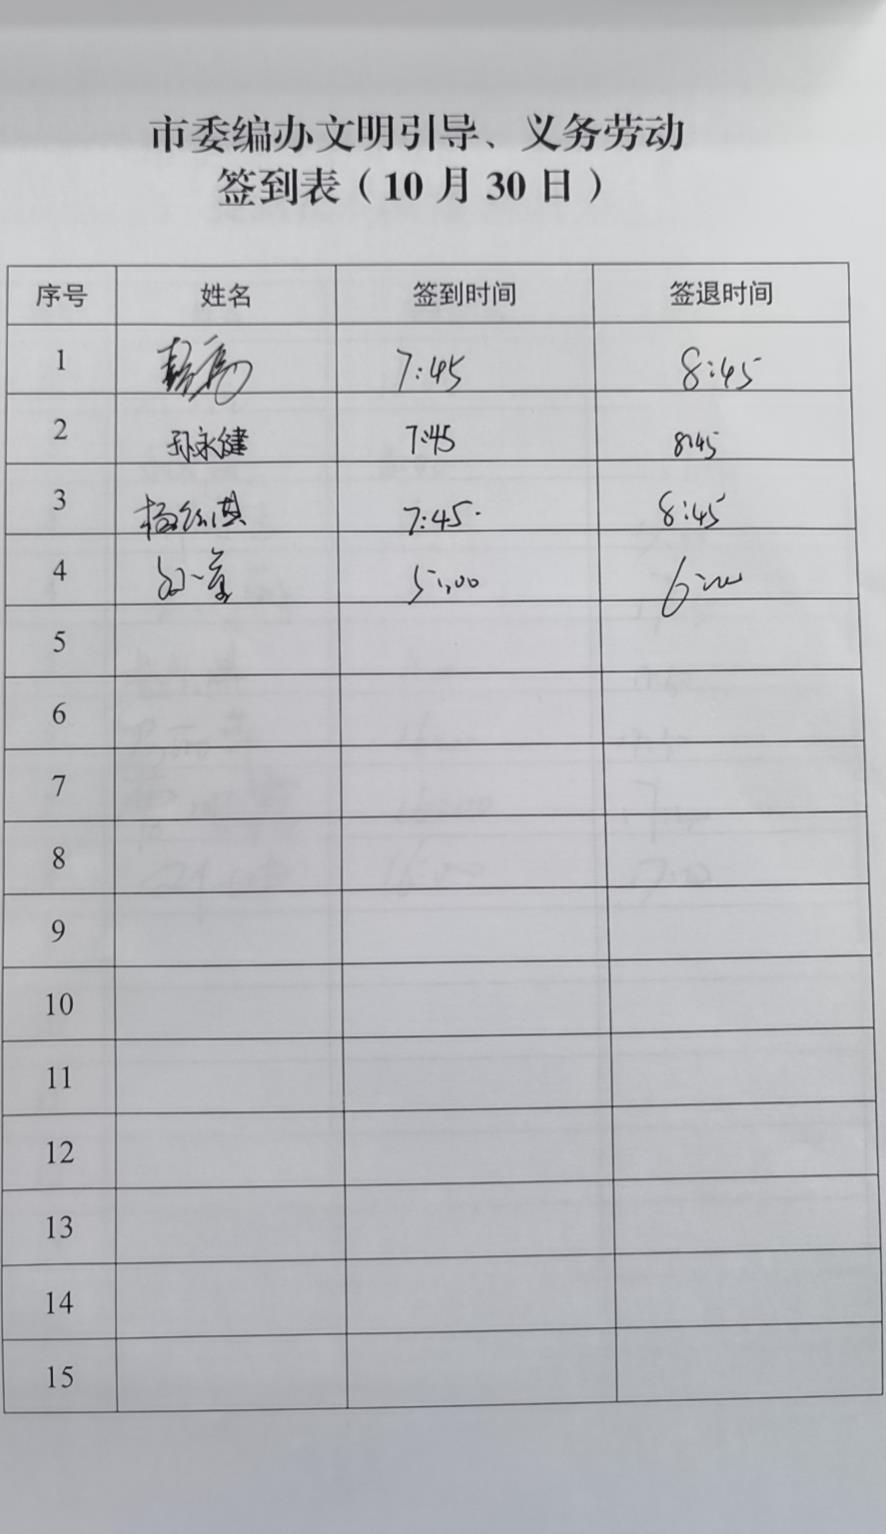 市委编办文明引导、义务劳动
签到表（10月30日）
序号 姓名 签到时间 签退时间
1 7:45 8:45
2 孙永健 7:45 8:45
3 7:45. 8:45
4 5:00 6:00
5
6
7
8
9
10
11
12
13
14
15